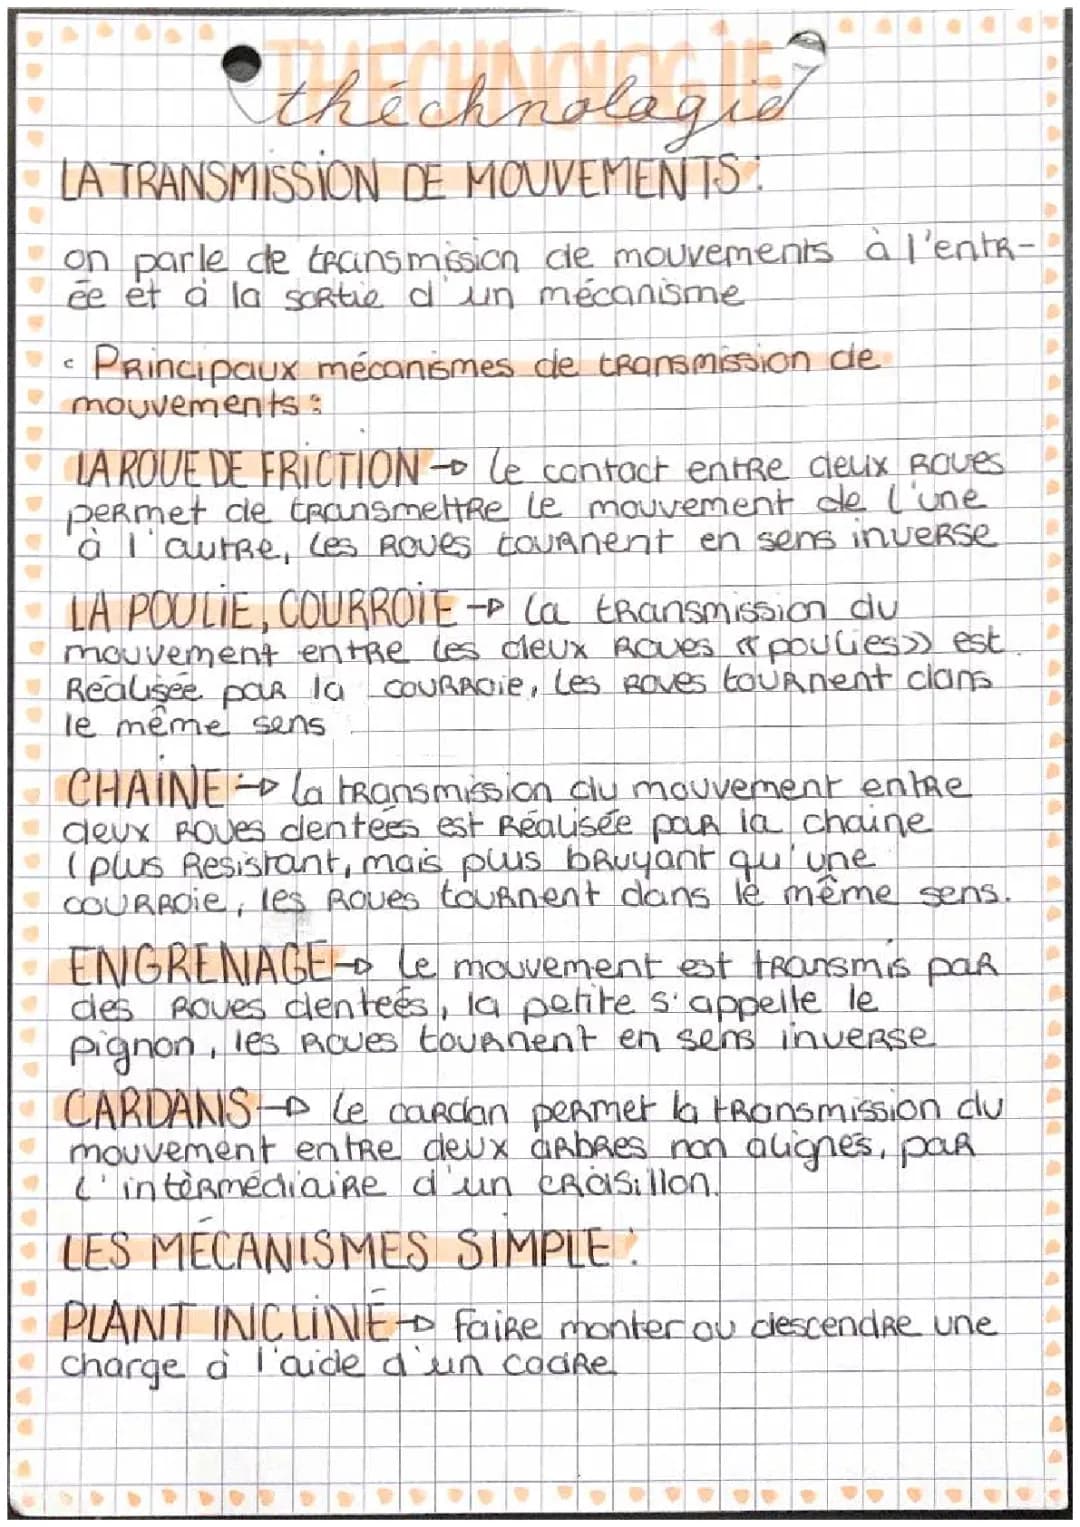 THECHNOLOGIE
théchnologie
LA TRANSMISSION DE MOUVEMENTS :
on parle de transmission de mouvements à l'entr-
ée et à la sortie d'un mécanisme
• Principaux mécanismes de transmission de
mouvements :
LA ROUE DE FRICTION → le contact entre deux roues
permet de transmettre le mouvement de l'une
à l'autre, les roues tournent en sens inverse
LA POULIE, COURROIE → la transmission du
mouvement entre les deux roues « poulies » est
réalisée par la courroie, les roues tournent dans
le même sens
CHAINE → la transmission du mouvement entre
deux roues dentées est réalisée par la chaine
(plus resistant, mais plus bruyant qu'une
courroie, les roues tournent dans le même sens.
ENGRENAGE → le mouvement est transmis par
des roues dentées, la petite s'appelle le
pignon, les roues tournent en sens inverse
CARDANS → le cardan permet la transmission du
mouvement entre deux arbres non alignés, par
l'intèrmédiaire d'un croisillon.
LES MÉCANISMES SIMPLE :
PLANT INCLINÉ → faire monter ou descendre une
charge à l'aide d'un cadre